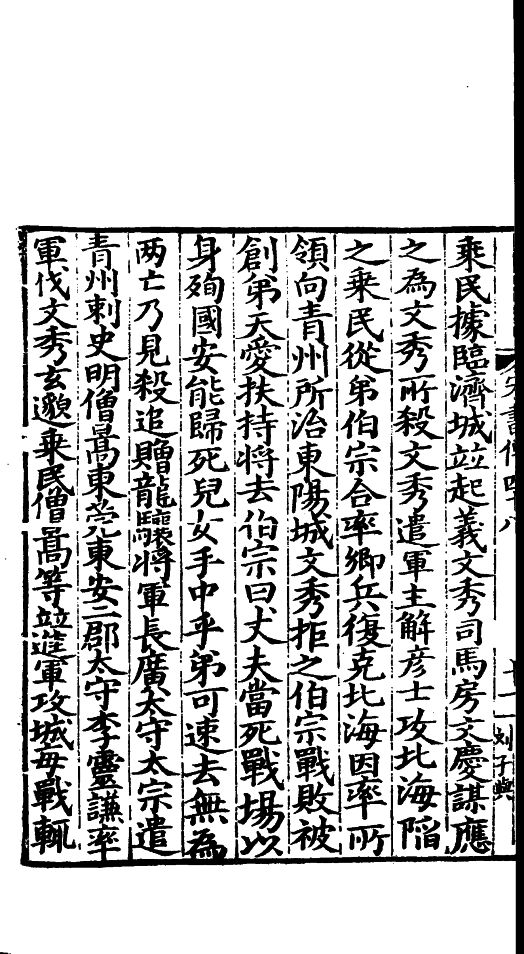 乘民據臨濟城並起義文秀司馬房文慶謀應
之為文秀所殺文秀遣軍主解彦士攻北海陷
之乗民從弟伯宗合率鄉兵復克北海因率所
領向青州所治東陽城文秀拒之伯宗戰敗被
創弟天愛扶持將去伯宗曰丈夫當死戰場以
身殉國安能歸死兒女手中乎弟可速去無為
兩亡乃見殺追贈龍驤將軍長廣太守太宗遣
青州刺史明僧暠東莞東安二郡太守李靈謙率
軍伐文秀玄邈乗民僧暠等並進軍攻城每戰輒